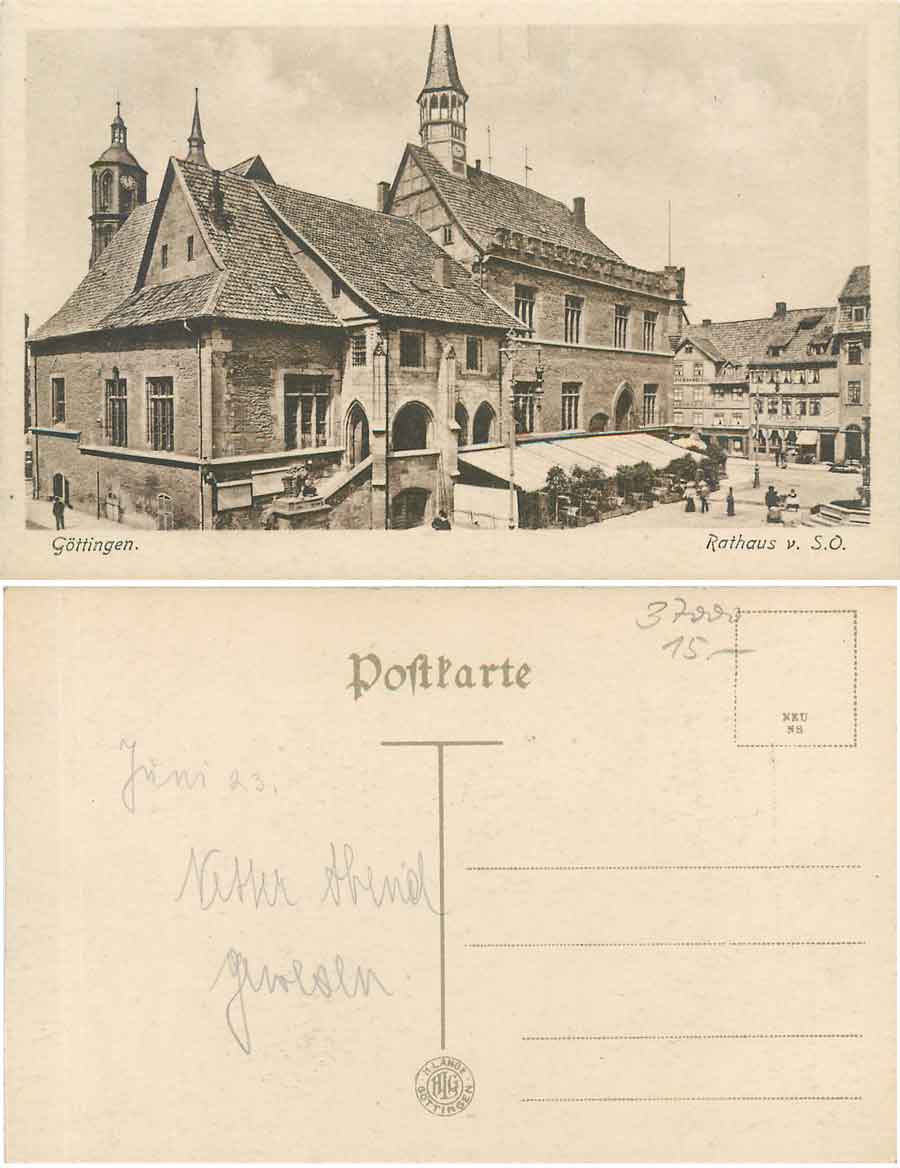 Göttingen.
Rathaus v. S.O.
37000
15.—
Postkarte
NEU
NS
Juni 23.
Netter Abend
gewesen.
H. LANGE
HLG
GÖTTINGEN